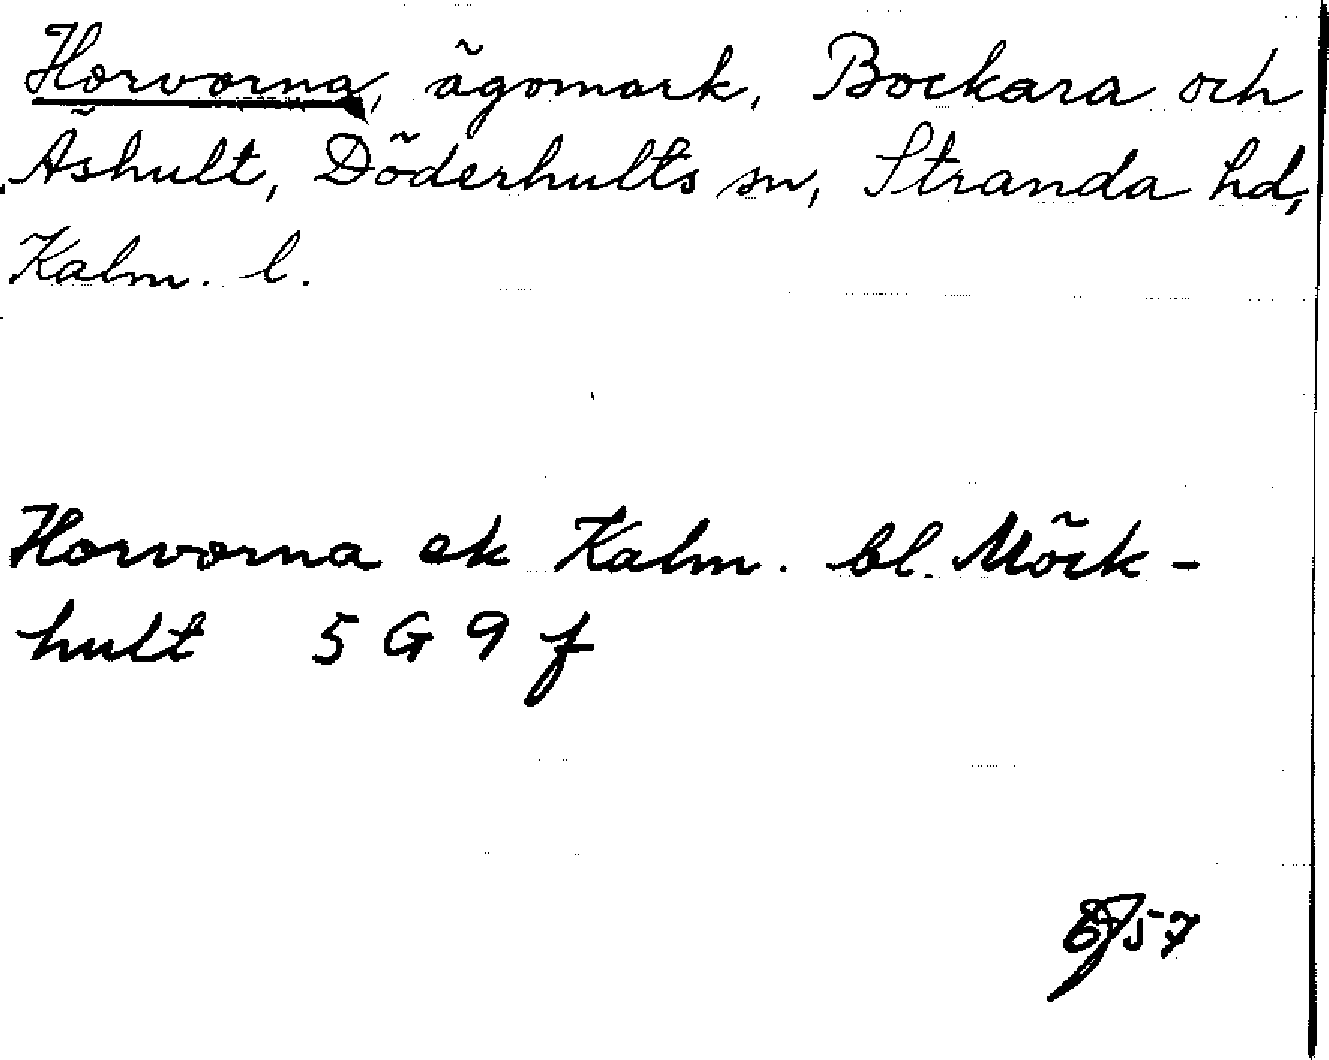 Horvorna, ägomark, Bockara och
Äshult, Döderhults sn, Stranda hd,
Kalm. l.
Horvorna ek Kalm. bl. Möck-
hult 5 G 9 f
57